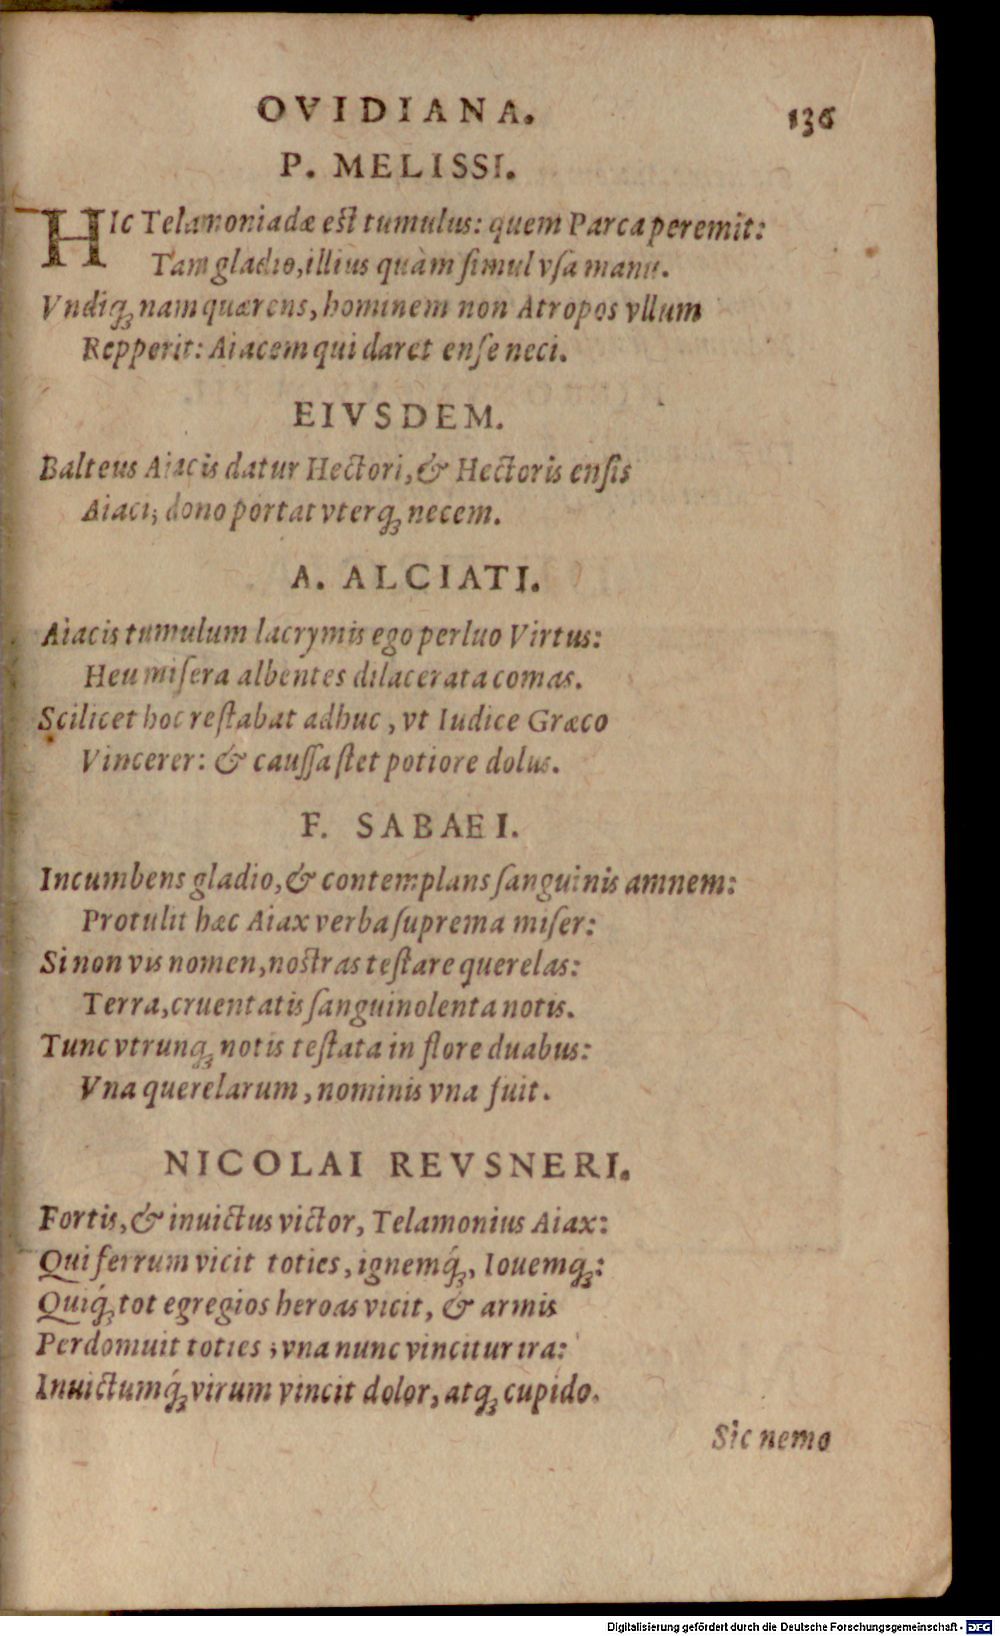 OVIDIANA. 136
P. MELISSI.
HIc Telamoniadæ est tumulus: quem Parca peremit:
Tam gladio, illius quàm simul vsa manu.
Vndiq; nam quærens, hominem non Atropos vllum
Repperit: Aiacem qui daret ense neci.
EIVSDEM.
Balteus Aiacis datur Hectori, & Hectoris ensis
Aiaci; dono portat vterq; necem.
A. ALCIATI.
Aiacis tumulum lacrymis ego perluo Virtus:
Heu misera albentes dilacerata comas.
Scilicet hoc restabat adhuc, vt Iudice Græco
Vincerer: & caussa stet potiore dolus.
F. SABAEI.
Incumbens gladio, & contemplans sanguinis amnem:
Protulit hæc Aiax verba suprema miser:
Si non vis nomen, nostras testare querelas:
Terra, cruentatis sanguinolenta notis.
Tunc vtrunq; notis testata in flore duabus:
Vna querelarum, nominis vna fuit.
NICOLAI REVSNERI.
Fortis, & inuictus victor, Telamonius Aiax:
Qui ferrum vicit toties, ignemq́;, Iouemq;:
Quiq́; tot egregios heroas vicit, & armis
Perdomuit toties; vna nunc vincitur ira:
Inuictumq́; virum vincit dolor, atq; cupido.
Sic nemo
Digitalisierung gefördert durch die Deutsche Forschungsgemeinschaft - DFG